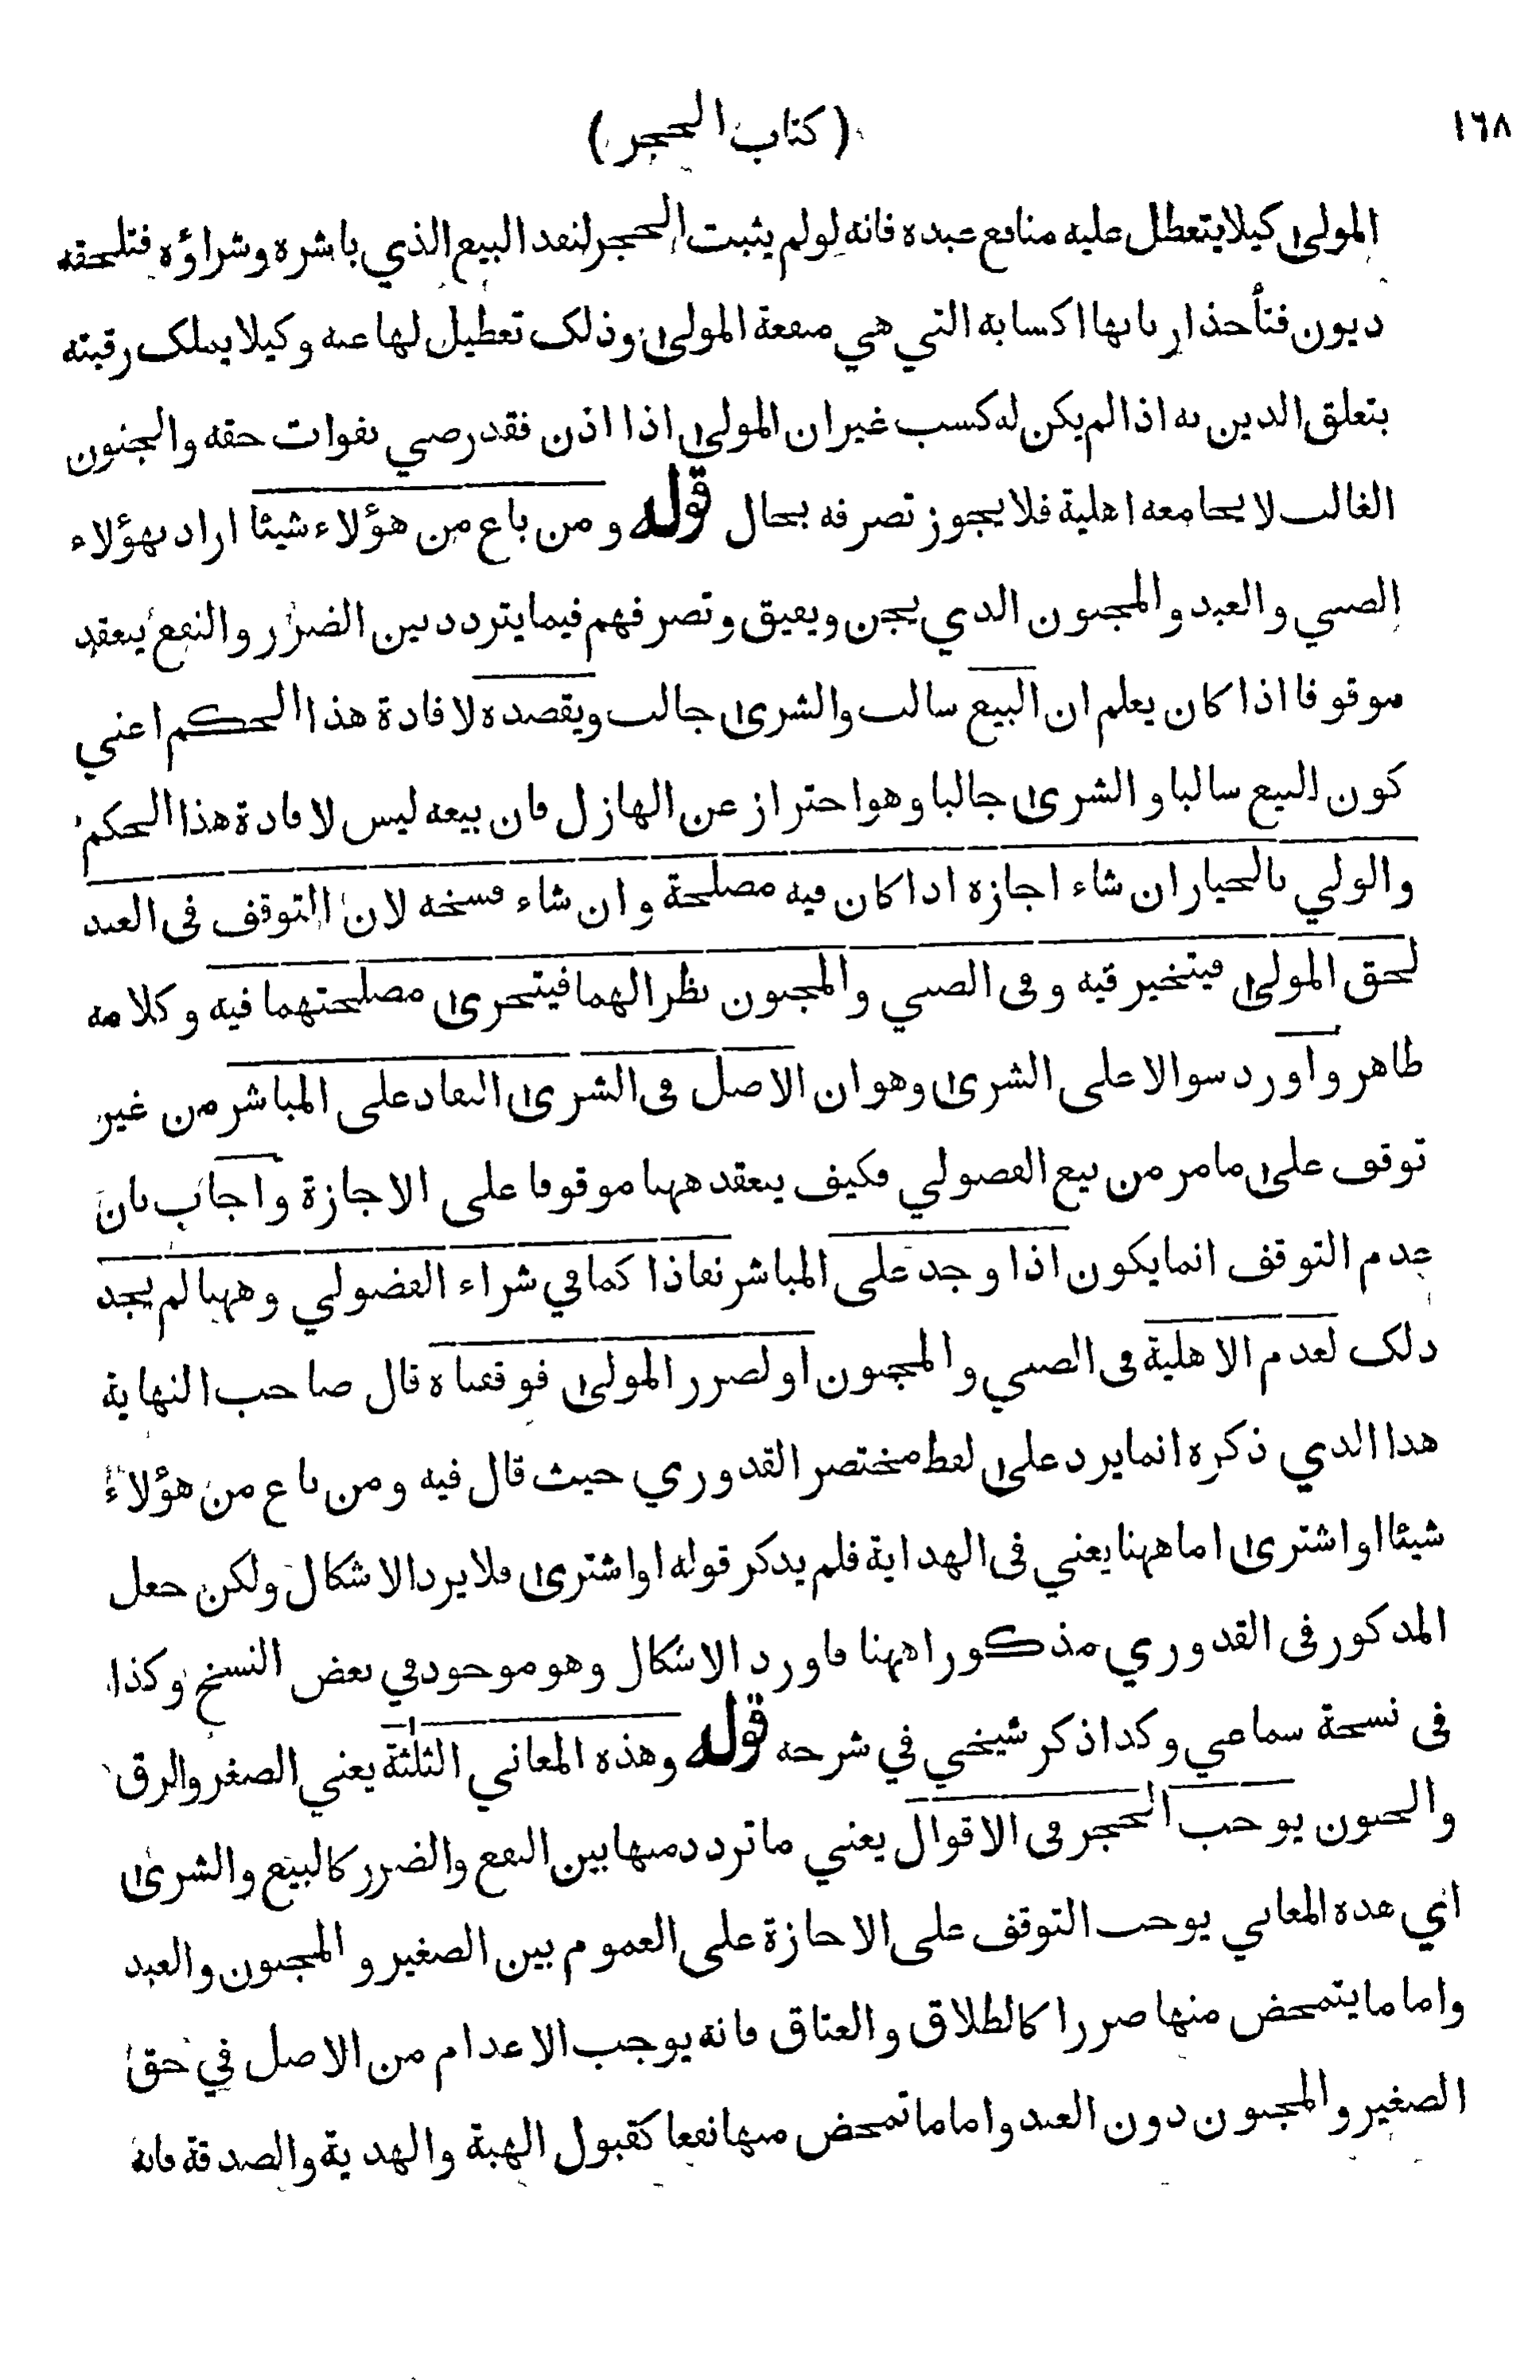 ١٦٨
( كتاب الحجر )
المولى كيلا يتعطل عليه منافع عبده فانه لو لم يثبت الحجر لنفذ البيع الذي باشره وشراؤه فتلحقه
ديون فتأخذ اربابها اكسابه التي هي منفعة المولى وذلك تعطيل لها عنه وكيلا يملك رقبته
بتعلق الدين به اذا لم يكن له كسب غير ان المولى اذا اذن فقد رضي بفوات حقه والمجنون
الغالب لا يجامعه اهلية فلا يجوز تصرفه بحال قوله ومن باع من هؤلاء شيئا اراد بهؤلاء
الصبي والعبد والمجنون الذي يجن ويفيق وتصرفهم فيما يتردد بين الضرر والنفع ينعقد
موقوفا اذا كان يعلم ان البيع سالب والشرى جالب ويقصده لافادة هذا الحكم اعني
كون البيع سالبا والشرى جالبا وهو احتراز عن الهازل فان بيعه ليس لافادة هذا الحكم
والولي بالخيار ان شاء اجازه اذا كان فيه مصلحة وان شاء فسخه لان التوقف فى العبد
لحق المولى فيتخير فيه وفى الصبي والمجنون نظرا لهما فيتحرى مصلحتهما فيه وكلامه
ظاهر واورد سوالا على الشرى وهو ان الاصل فى الشرى النفاد على المباشر من غير
توقف على ما مر من بيع الفضولي فكيف ينعقد ههنا موقوفا على الاجازة واجاب بان
عدم التوقف انما يكون اذا وجد على المباشر نفاذا كما في شراء الفضولي وههنا لم يجد
ذلك لعدم الاهلية فى الصبي والمجنون او لضرر المولى فوقفناه قال صاحب النهاية
هذا الذي ذكره انما يرد على لفظ مختصر القدوري حيث قال فيه ومن باع من هؤلاء
شيئا او اشترى اما ههنا يعني فى الهداية فلم يذكر قوله او اشترى فلا يرد الاشكال ولكن جعل
المذكور فى القدوري مذكورا ههنا فاورد الاشكال وهو موجود في بعض النسخ وكذا
فى نسخة سماعي وكذا ذكر شيخي في شرحه قوله وهذه المعاني الثلثة يعني الصغر والرق
والجنون يوجب الحجر فى الاقوال يعني ما تردد منها بين النفع والضرر كالبيع والشرى
اي هذه المعاني يوجب التوقف على الاجازة على العموم بين الصغير والمجنون والعبد
واما ما يتمحض منها ضررا كالطلاق والعتاق فانه يوجب الاعدام من الاصل في حق
الصغير والمجنون دون العبد واما ما تمحض منها نفعا كقبول الهبة والهدية والصدقة فانه